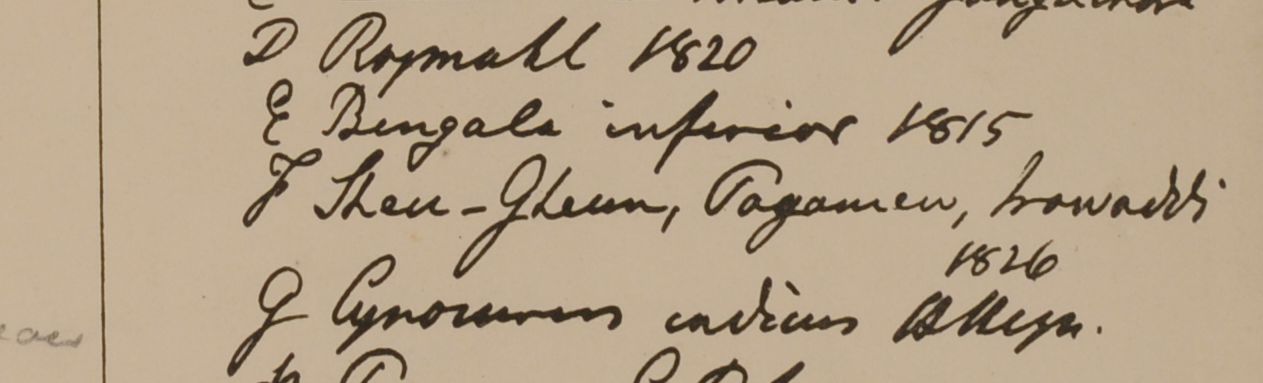 D Rojmahl 1820
E Bengala inferior 1815
F Sheu-Gheun, Pagamew, Irawaddi
1826
G Cynosurus indicus